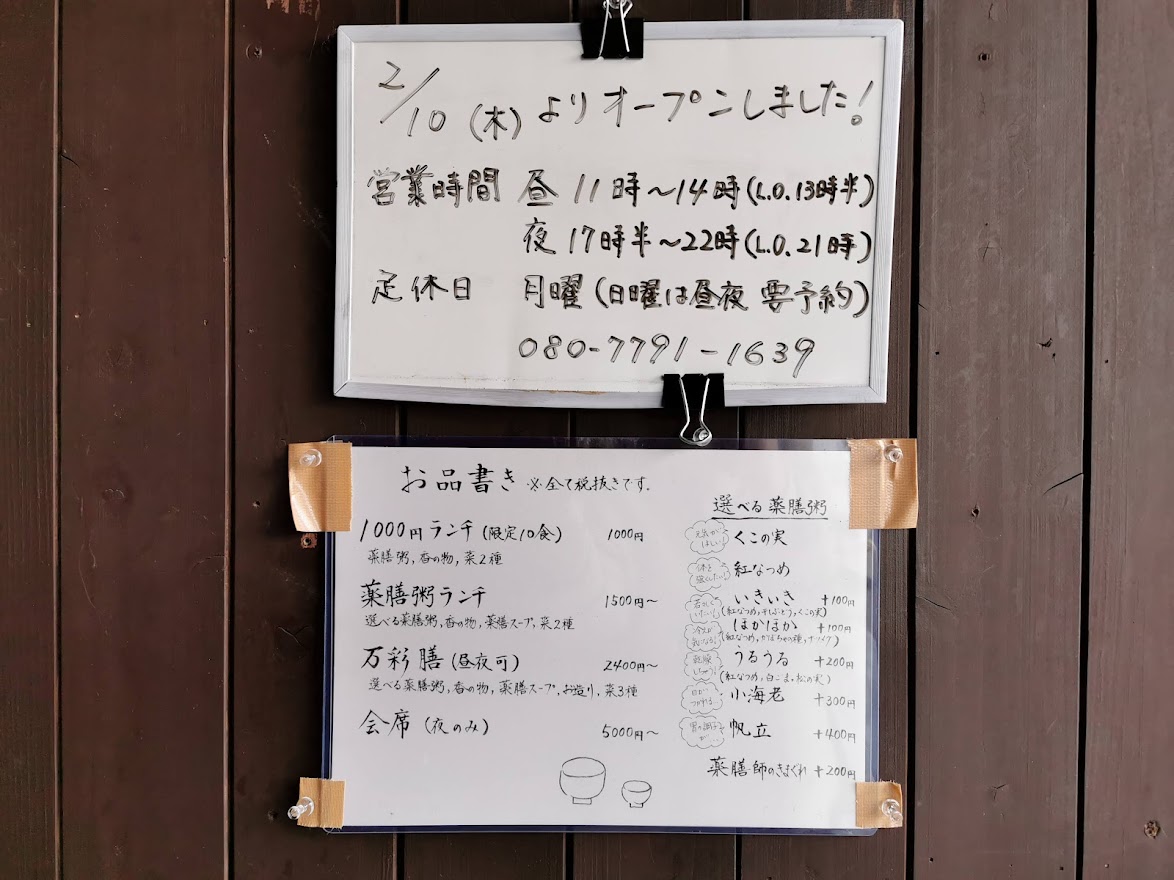 2/10(木)よりオープンしました!
営業時間 昼 11時~14時(L.O.13時半)
夜 17時半~22時(L.O.21時)
定休日 月曜(日曜は昼夜 要予約)
080-7791-1639
お品書き ※全て税抜きです.
1000円ランチ(限定10食) 1000円
薬膳粥,香の物,菜2種
薬膳粥ランチ 1500円~
選べる薬膳粥,香の物,薬膳スープ,菜2種
万彩膳(昼夜可) 2400円~
選べる薬膳粥,香の物,薬膳スープ,お造り,菜3種
会席(夜のみ) 5000円~
選べる薬膳粥
元気がほしい くこの実
紅なつめ
いきいき +100円
(紅なつめ,干しぶどう,くこの実)
ほかほか +100円
(紅なつめ,かぼちゃの種,ナツメグ)
うるうる +200円
(紅なつめ,白ごま,松の実)
目がつかれる 小海老 +300円
胃の調子が… 帆立 +400円
薬膳師のきまぐれ +200円